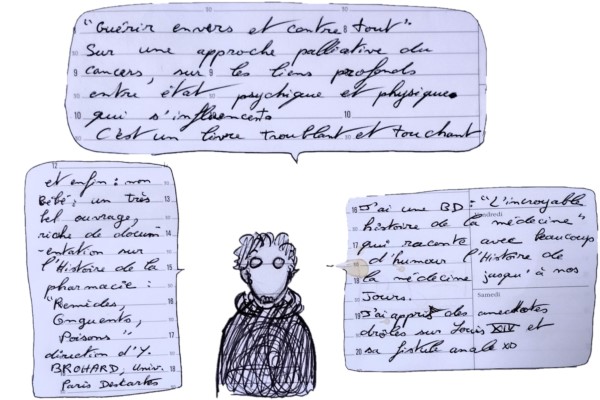 "Guérir envers et contre tout"
Sur une approche palliative du
cancers, sur les liens profonds
entre état psychique et physique
qui s'influencents
C'est un livre troublant et touchant
J'ai une BD : "L'incroyable
histoire de la médecine"
qui raconte avec beaucoup
d'humour l'Histoire de
la médecine jusqu'à nos
Jours.
Samedi
J'ai appris des anecdotes
drôles sur Louis XIV et
sa fistule anale XD
et enfin : mon
Bébé, un très
bel ouvrage,
riche de docum
-entation sur
l'Histoire de la
pharmacie :
"Remèdes,
Onguents,
Poisons"
direction d'Y.
BROHARD, Univ.
Paris Descartes